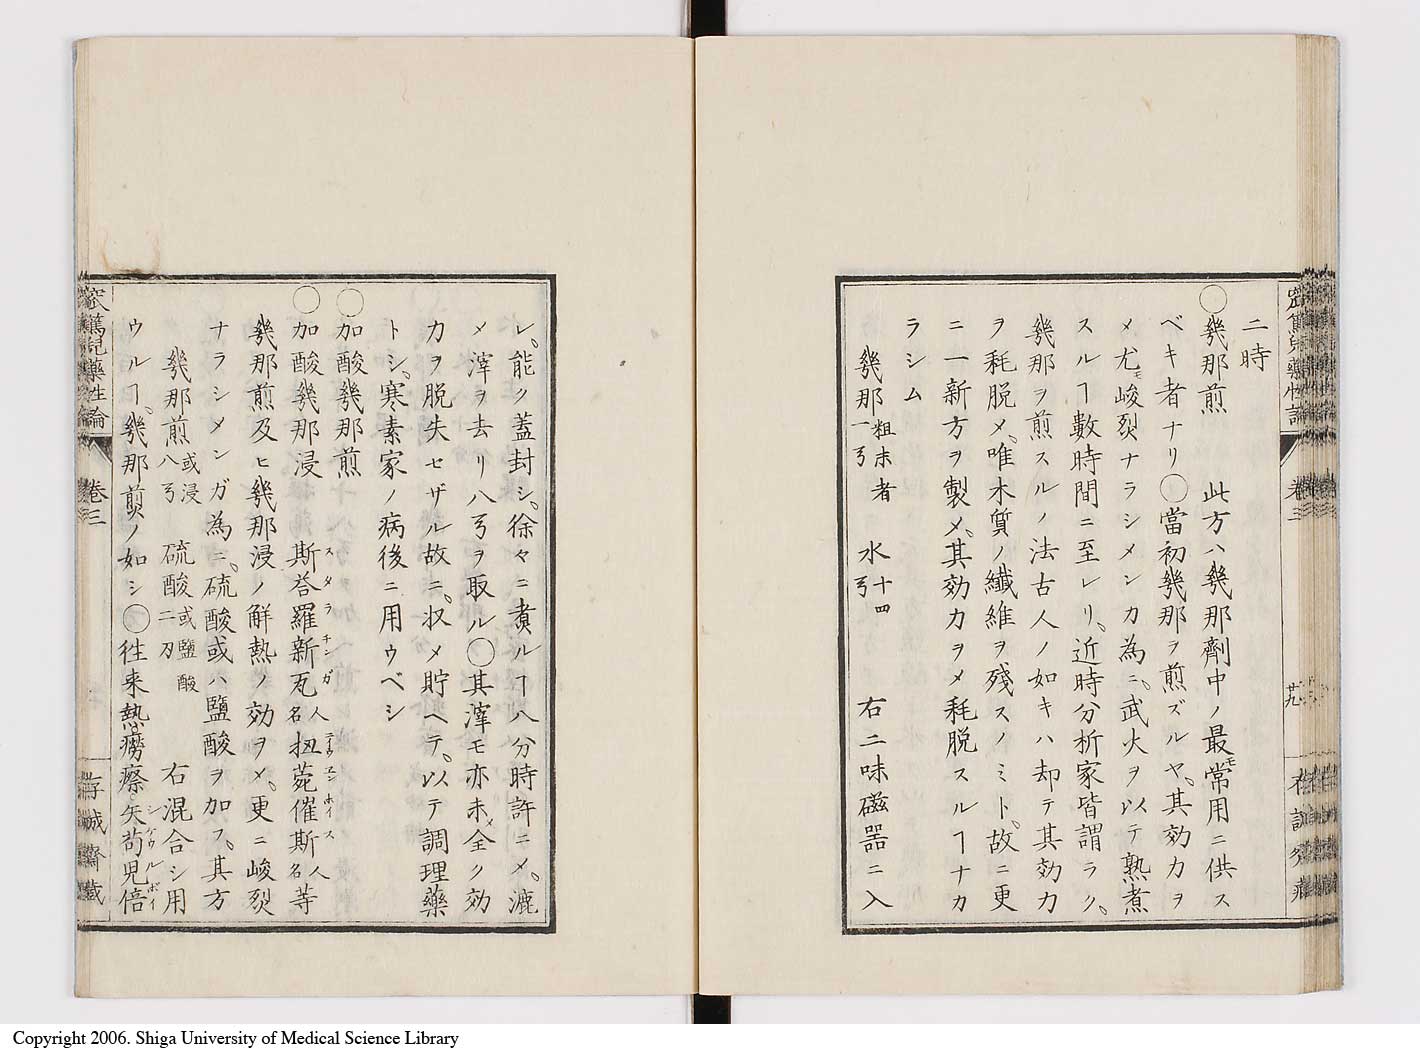 二時
○幾那煎　此方ハ幾那劑中ノ最モ常用ニ供ス
ベキ者ナリ○當初幾那ヲ煎ズルヤ其効力ヲ
メ尤モ峻烈ナラシメンカ為ニ武火ヲ以テ熟煮
スルヿ數時間ニ至レリ近時分析家皆謂ラク
幾那ヲ煎スルノ法古人ノ如キハ却テ其効力
ヲ耗脱メ唯木質ノ纎維ヲ殘スノミト故ニ更
ニ一新方ヲ製メ其効力ヲメ耗脱スルヿナカ
ラシム
幾那粗末者一弓　水十四弓　右二味磁器ニ入
レ能ク蓋封シ徐々ニ煑ルヿ八分時許ニメ漉
メ滓ヲ去リ八弓ヲ取ル○其滓モ亦未メ全ク効
力ヲ脱失セザル故ニ收メ貯ヘテ以テ調理藥
トシ寒素家ノ病後ニ用ウベシ
○加酸幾那煎
○加酸幾那浸　斯答羅新瓦人名扭菀催斯人名等
スタラチンガ　ホイス
幾那煎及ヒ幾那浸ノ解熱ノ効ヲメ更ニ峻烈
ナラシメンガ為ニ硫酸或ハ鹽酸ヲ加フ其方
幾那煎或浸八弓　硫酸或鹽酸二刃　右混合シ用
ウルヿ幾那煎ノ如シ○往来熱癆瘵矢苟児倍
シケウルボイ
卷三
存誠齋蔵
卷三
廿九
Copyright 2006. Shiga University of Medical Science Library